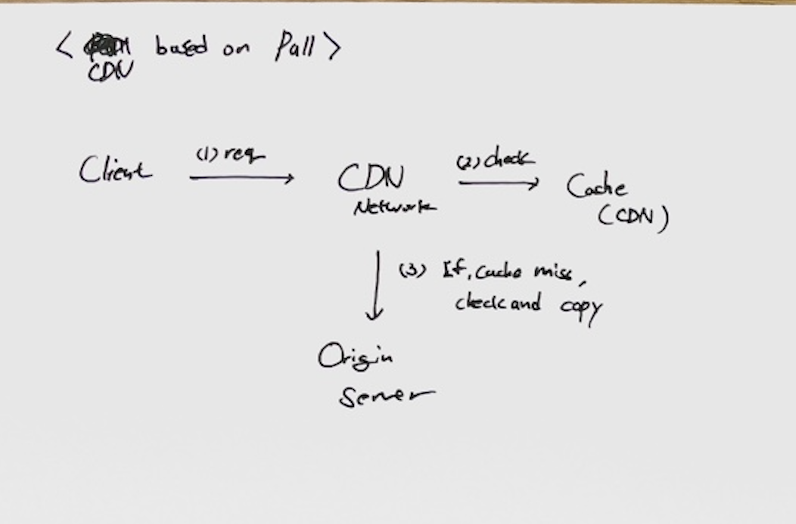 < CDN based on Pall >
Client
(1) req
CDN
Network
(2) check
Cache
(CDN)
(3) If, Cache miss,
check and copy
Origin
Server